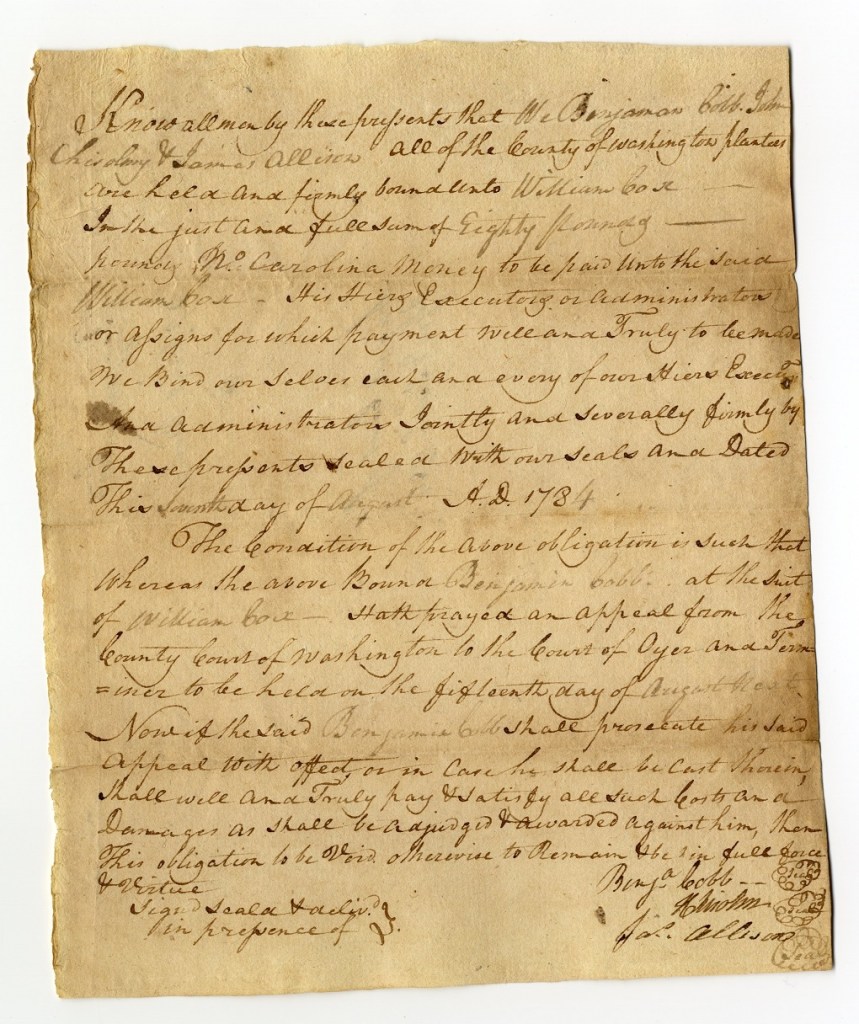 Know all men by these presents that We Benjaman Cobb. John
Chisolm & James Allison all of the County of Washington planters
are held and firmly bound unto William Cox —
In the just and full sum of Eighty pounds —
pounds, No. Carolina Money to be paid unto the said
William Cox - His Hiers Executors or administrators
or assigns for which payment well and Truly to be made
We Bind our selves each and every of our Hiers Execut.
And administrators Jointly and severally firmly by
These presents sealed with our seals and Dated
This day of August A.D. 1784
The Condition of the above obligation is such that
whereas the above Bound Benjamin Cobb. at the suit
of William Cox — Hath prayed an appeal from the
County Court of Washington to the Court of Oyer and Term=
=iner to be held on the fifteenth day of August Next.
Now if the said Benjamin Cobb shall prosecute his said
Appeal with effect, or in case he shall be cast therein,
shall well and Truly pay & satisfy all such Costs and
Damages as shall be adjudged & awarded against him, then
This obligation to be Void. otherwise to Remain & be in full force
& Virtue
Benja. Cobb -- Seal
Sign'd seal'd & deliv.d
Chisolm Seal
in presence of }.
Jas. Allison Seal